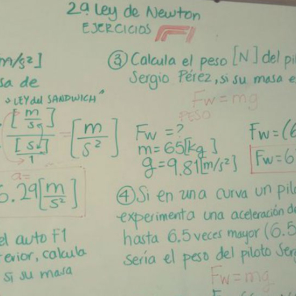 2ª Ley de Newton
EJERCICIOS
m/s²]
sa de
"LEY del SANDWICH"
[m/s]
[s]/1
= [m/s²]
a=
6.29 [m/s²]
el auto F1
erior, calcula
si su masa
③ Calcula el peso [N] del pi
Sergio Pérez, si su masa e
Fw = mg
PESO
Fw = ?
m = 65 [kg]
g = 9.81 [m/s²]
Fw = (6
Fw = 6
④ Si en una curva un pil
experimenta una aceleración d
hasta 6.5 veces mayor (6.5
sería el peso del piloto Ser
Fw = mg